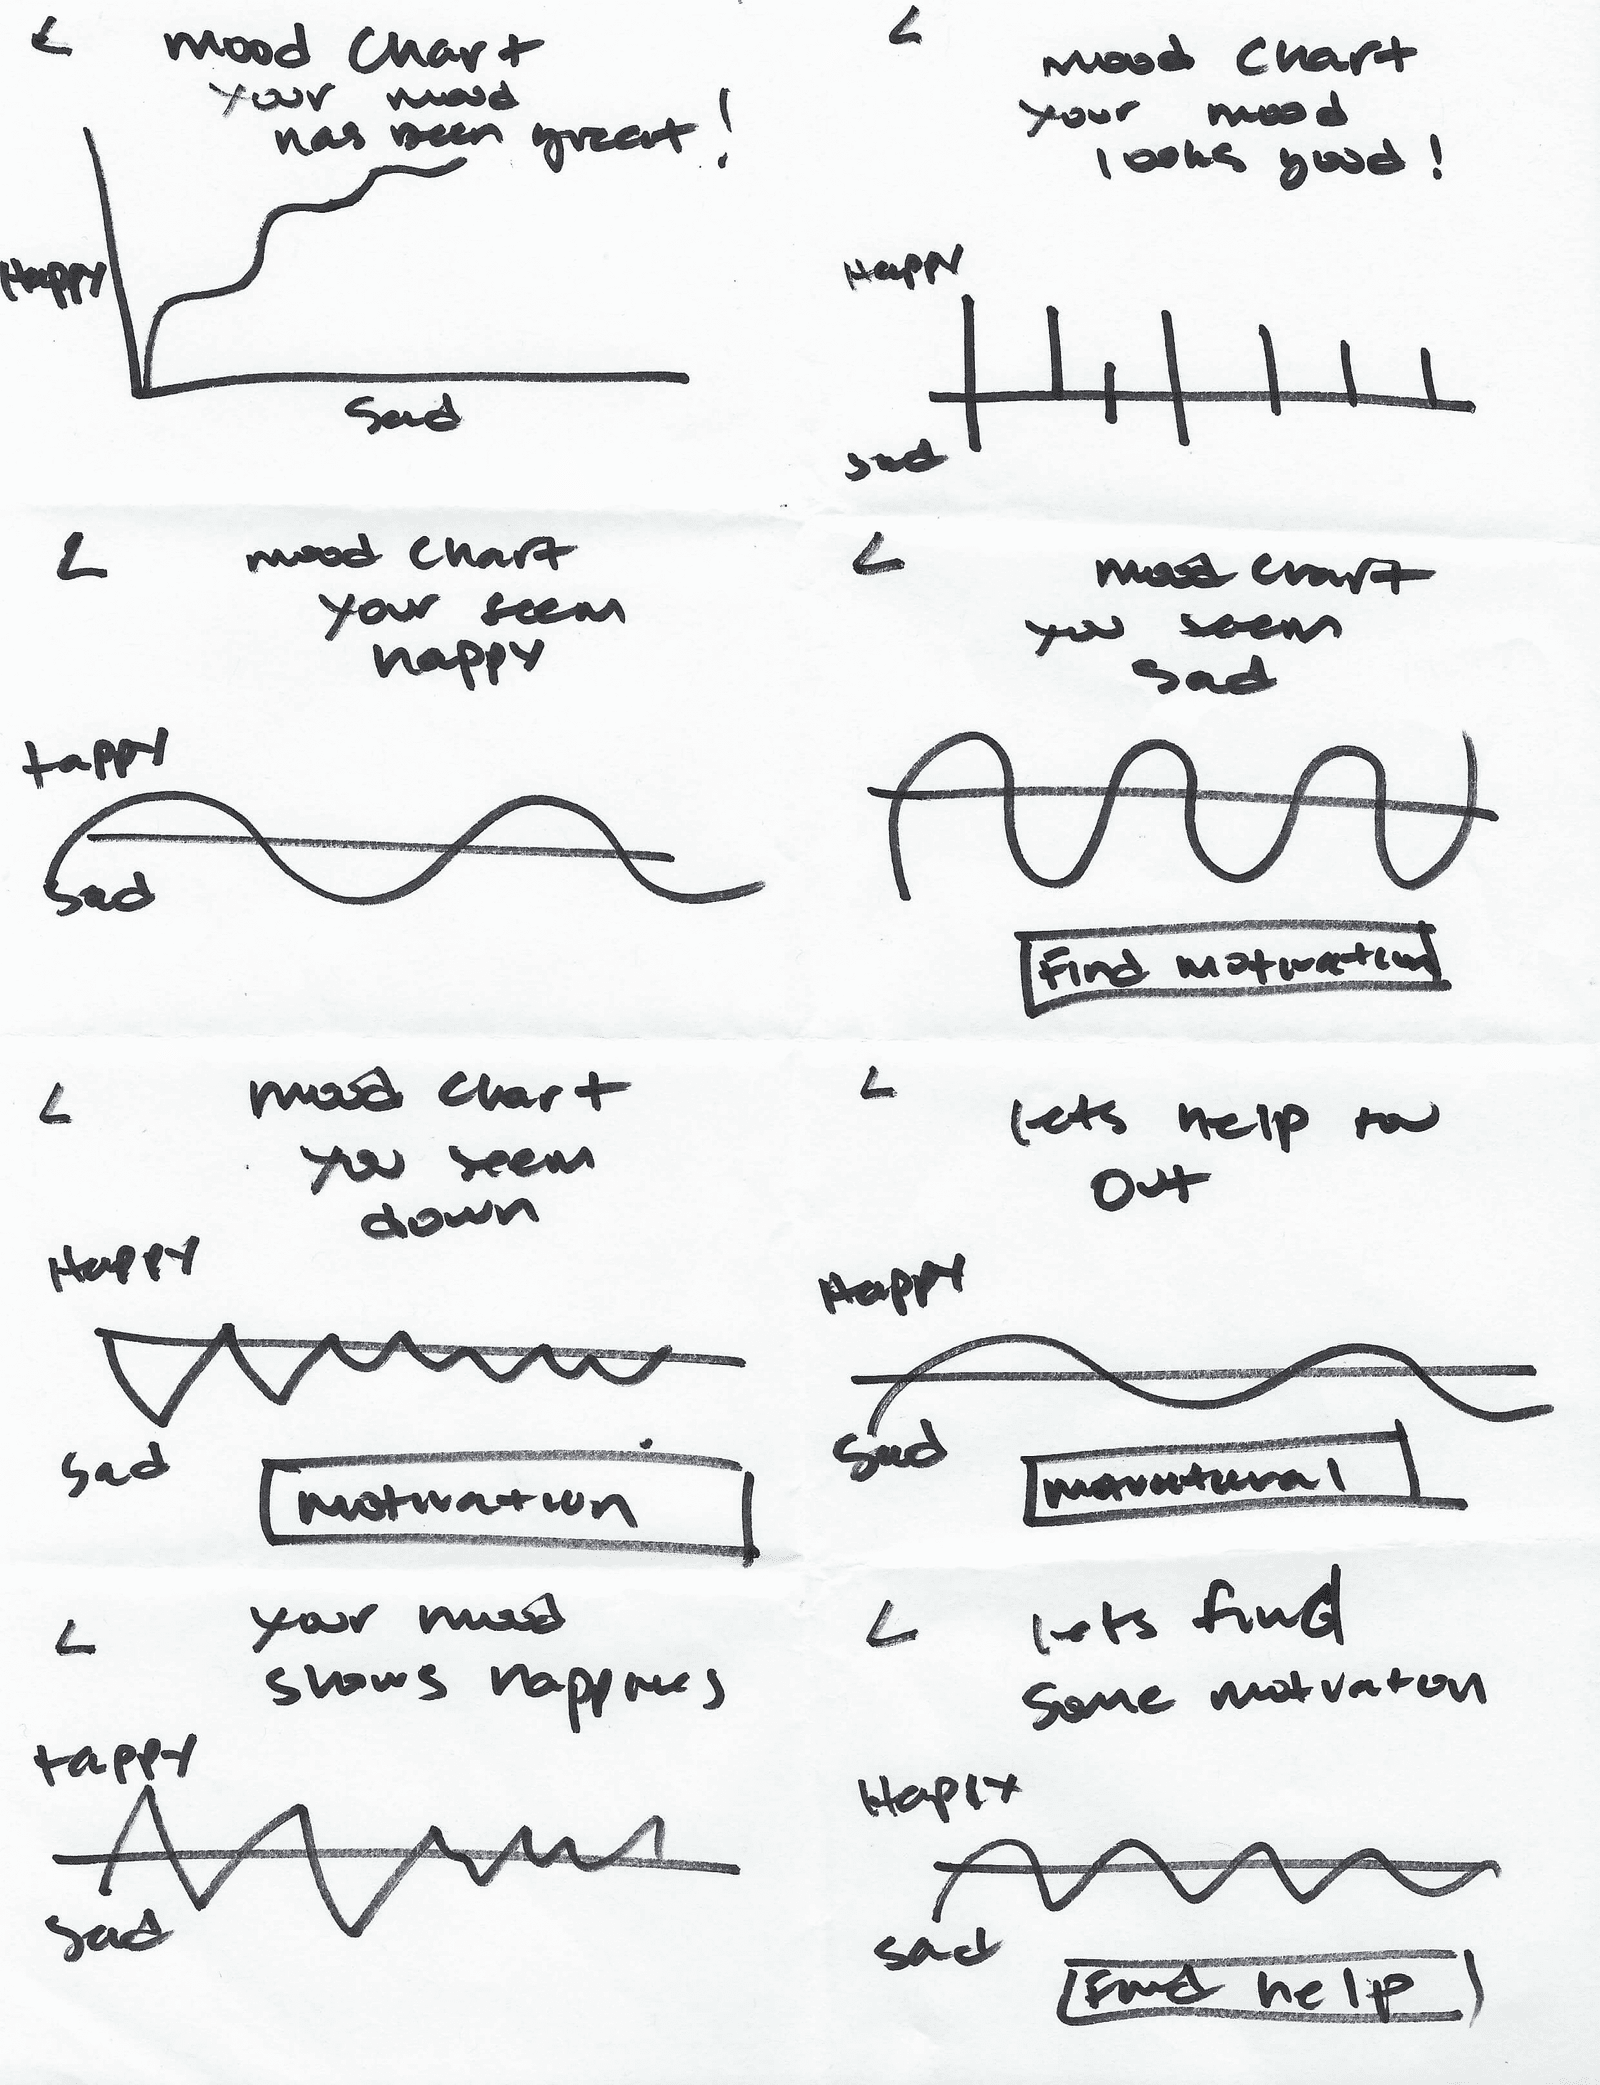 < Mood Chart
Your mood
has been great!
Happy
Sad
< Mood Chart
Your mood
looks good!
Happy
Sad
< Mood Chart
Your seem
happy
Happy
Sad
< Mood Chart
You seem
Sad
Find motivation
< Mood Chart
You seem
down
Happy
Sad
Motivation
< Lets help
Out
Happy
Sad
< Your mood
shows happines
Happy
Sad
< Lets find
Some motivaton
Happy
Sad
Find help